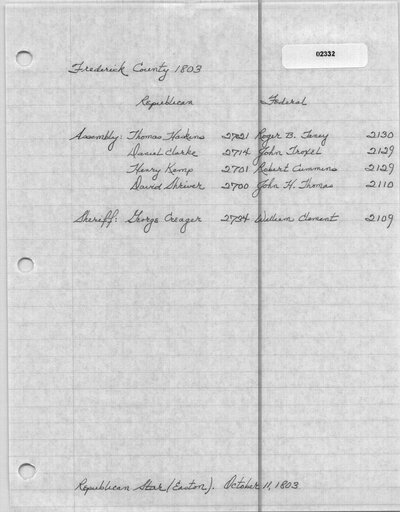 02332
Frederick County 1803
Republican Federal
Assembly: Thomas Hawkins 2721 Roger B. Taney 2130
Daniel Clarke 2714 John Troxel 2129
Henry Kemp 2701 Robert Cummins 2129
David Shriver 2700 John H. Thomas 2110
Sheriff: George Creager 2734 William Clement 2109
Republican Star (Easton). October 11, 1803